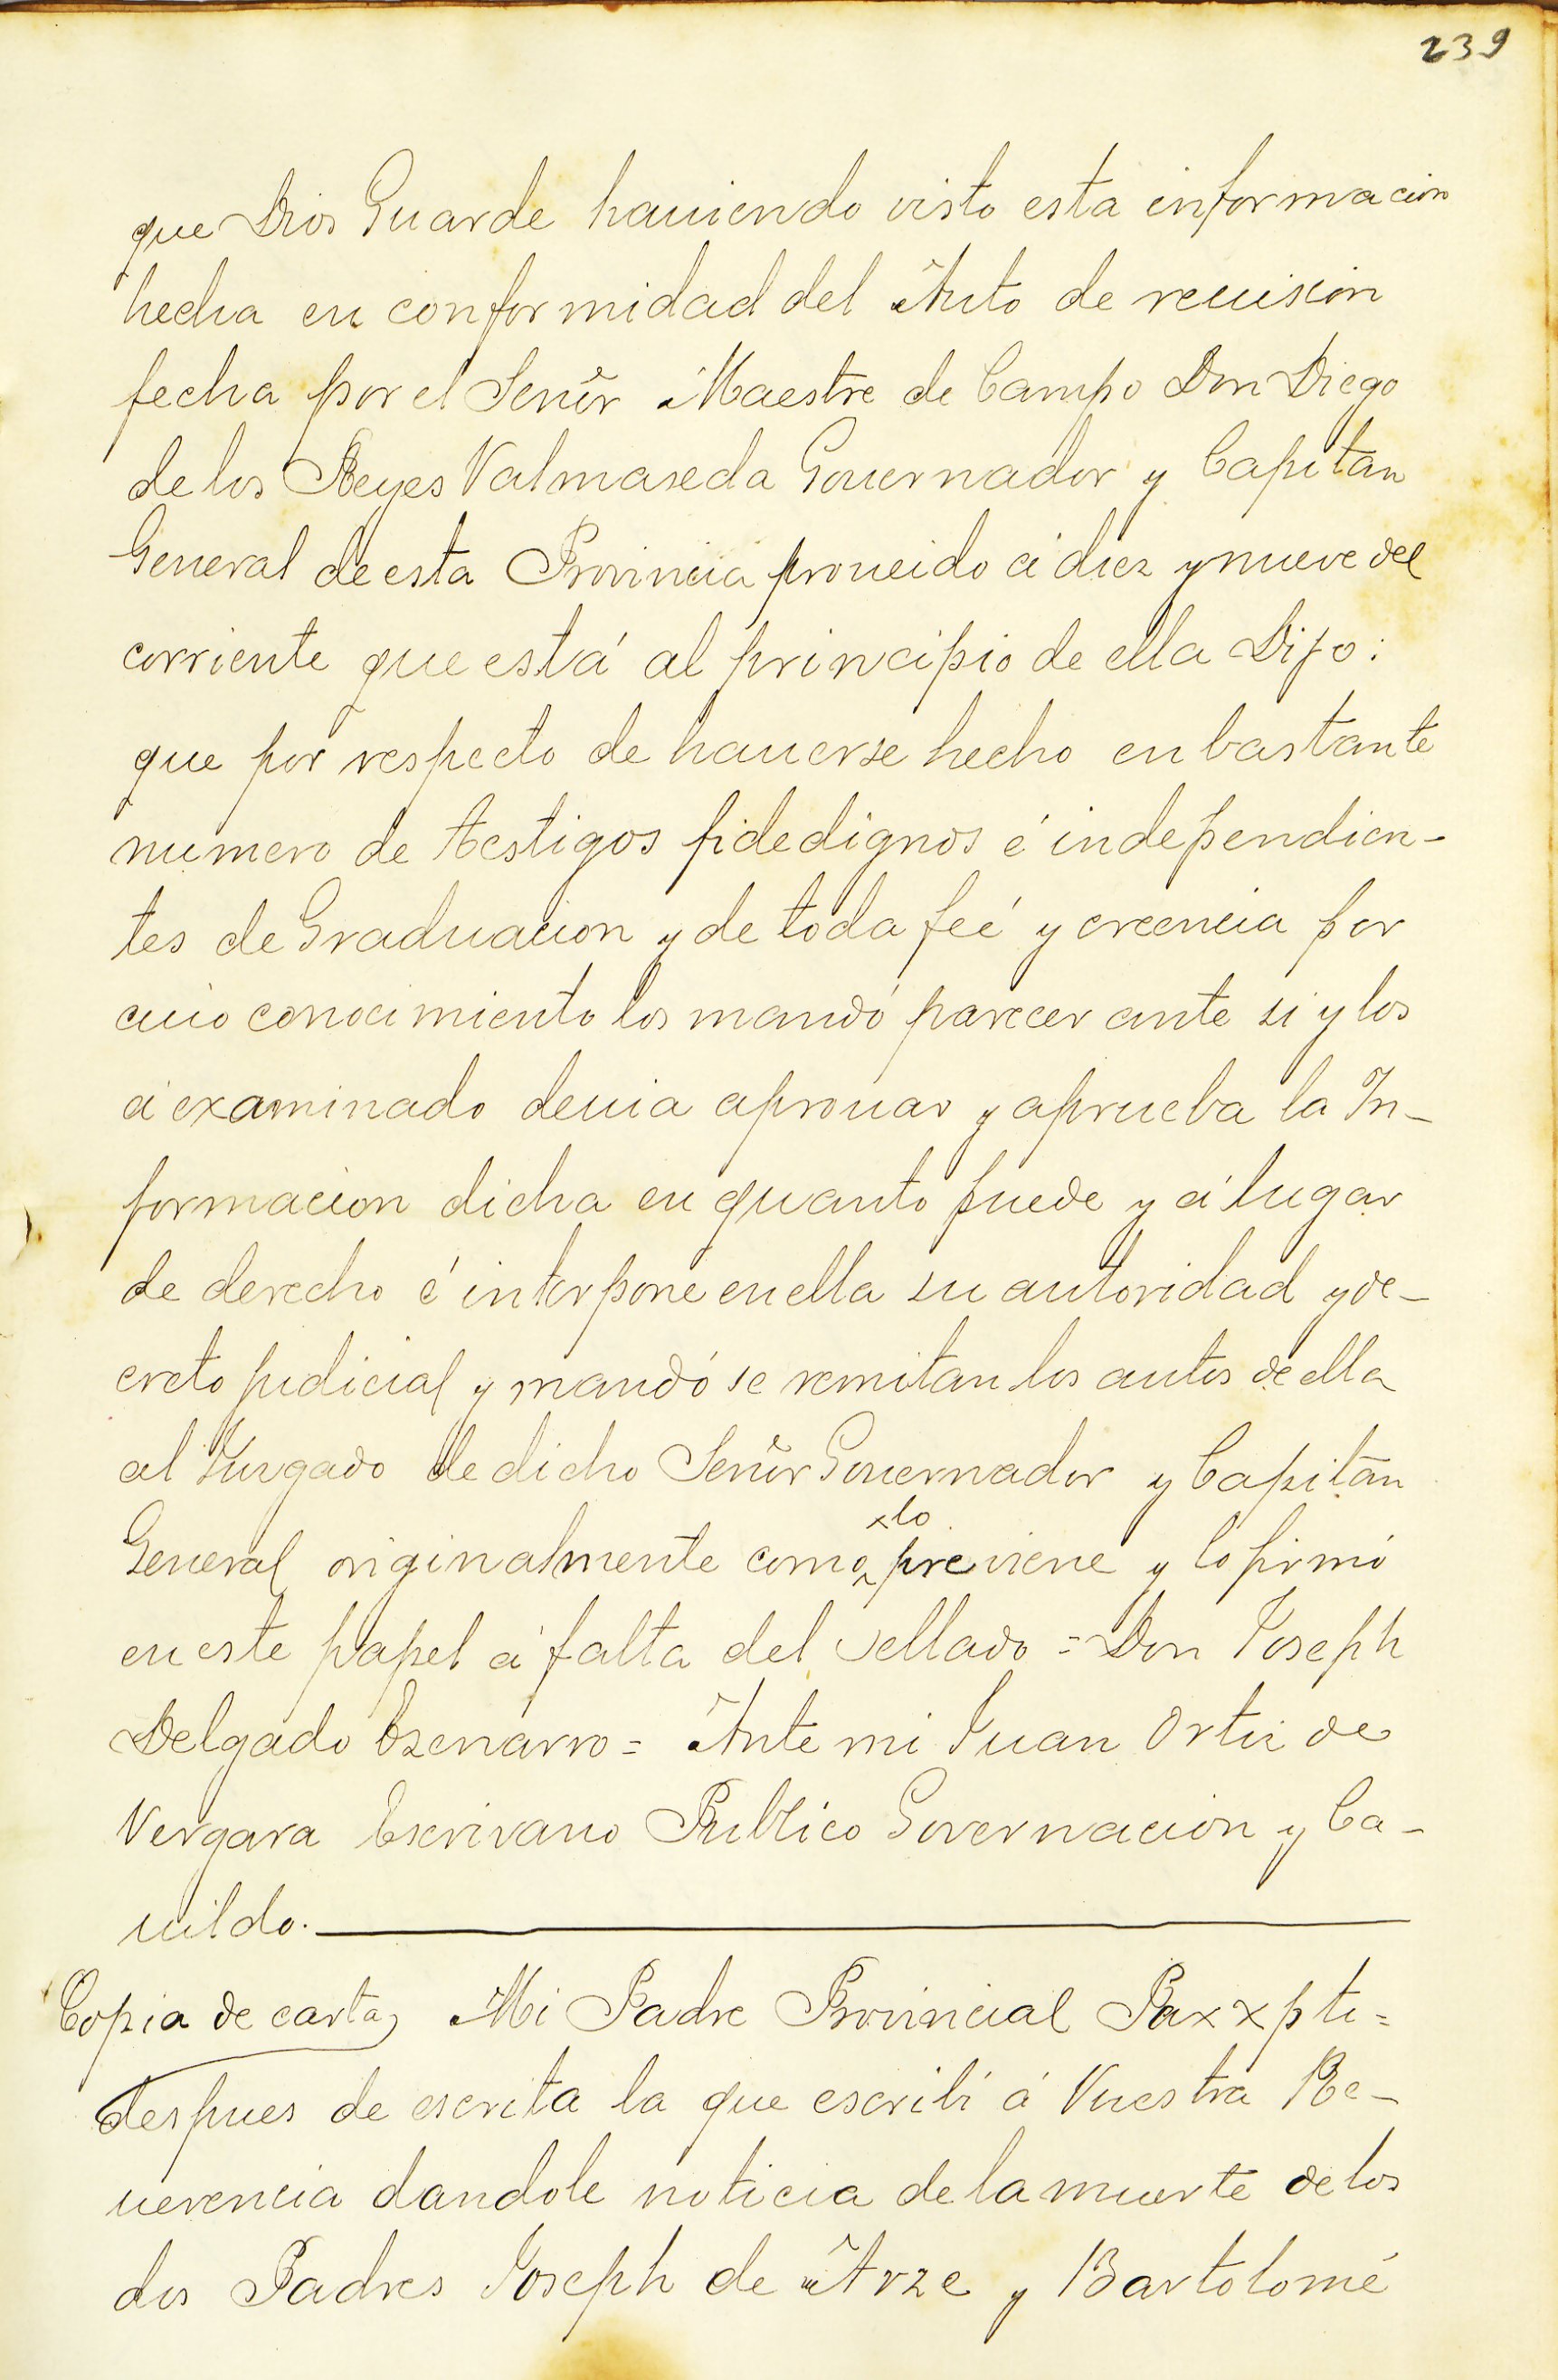 239
que Dios Guarde hauiendo visto esta informacion
hecha en conformidad del Auto de reuision
fecha por el Señor Maestre de Campo Don Diego
de los Reyes Valmaseda Gouernador y Capitan
General de esta Provincia proueido á diez y nueve del
corriente que está al principio de ella Dijo:
que por respecto de hauerse hecho en bastante
numero de testigos fidedignos é independien-
tes de Graduacion y de toda feé y creencia por
cuio conocimiento los mandó parecer ante si y los
á examinado deuia aprouar y aprueba la In-
formacion dicha en quanto puede y á lugar
de derecho é interpone en ella su autoridad y de-
creto judicial y mandó se remitan los autos de ella
al Juzgado de dicho Señor Gouernador y Capitan
General originalmente como lo previene y lo firmó
en este papel á falta del sellado = Don Joseph
Delgado Ezenarro = Ante mi Juan Ortiz de
Vergara Escrivano Publico Governacion y Ca-
uildo.
Copia de carta, Mi Padre Provincial Pax xpti =
despues de escrita la que escribí á Vuestra Re-
uerencia dandole noticia de la muerte de los
dos Padres Joseph de Arze y Bartolomé